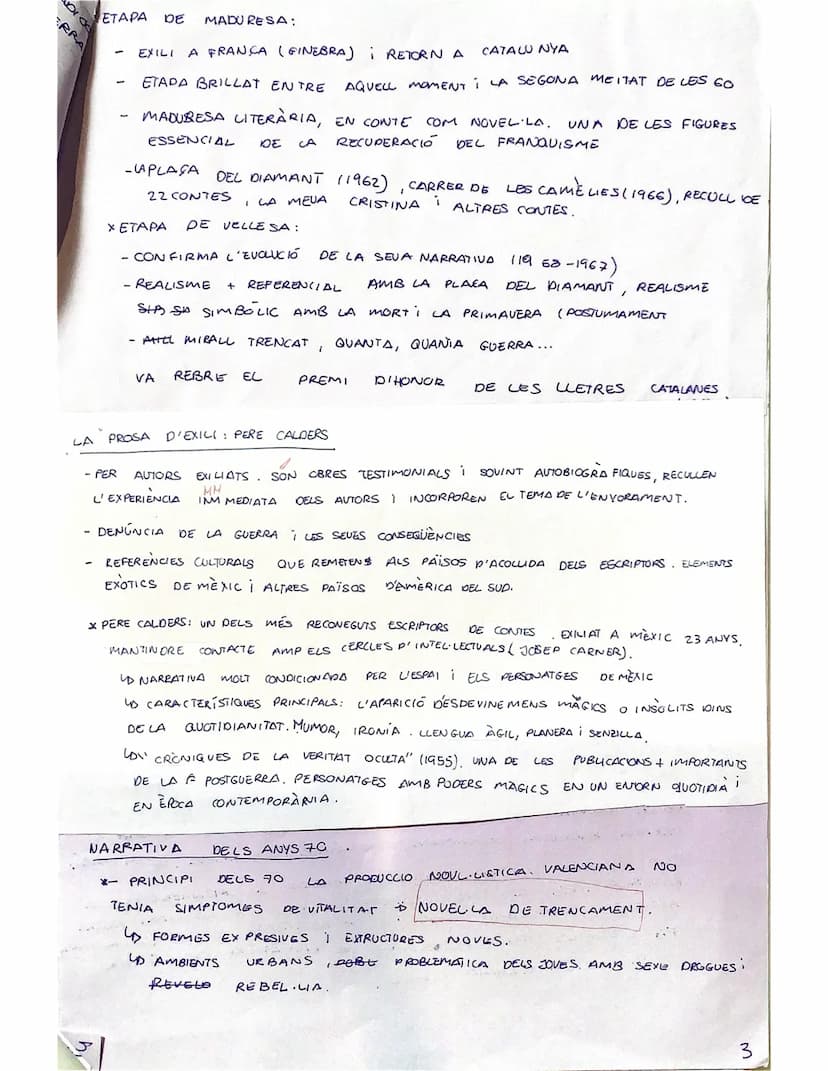 ETAPA DE MADURESA:
- EXILI A FRANÇA (GINEBRA) i RETORN A CATALUNYA
- ETAPA BRILLAT ENTRE AQUELL MOMENT i LA SEGONA MEITAT DE LES 60
- MADURESA LITERÀRIA, EN CONTE COM NOVEL·LA. UNA DE LES FIGURES
ESSENCIAL DE LA RECUPERACIÓ DEL FRANQUISME
- LA PLAÇA DEL DIAMANT (1962), CARRER DE LES CAMÈLIES (1966), RECULL DE
22 CONTES, LA MEUA CRISTINA i ALTRES CONTES.
* ETAPA DE VELLESA:
- CONFIRMA L'EVOLUCIÓ DE LA SEUA NARRATIVA (19 63-1967)
- REALISME + REFERENCIAL AMB LA PLAÇA DEL DIAMANT, REALISME
SIMBÒLIC AMB LA MORT i LA PRIMAVERA (POSTUMAMENT
- MIRALL TRENCAT, QUANTA, QUANTA GUERRA...
VA REBRE EL PREMI D'HONOR DE LES LLETRES CATALANES
LA PROSA D'EXILI: PERE CALDERS
- PER AUTORS EXILIATS. SÓN OBRES TESTIMONIALS i SOVINT AUTOBIOGRÀFIQUES, RECULLEN
L'EXPERIÈNCIA INMMEDIATA DELS AUTORS I INCORPOREN EL TEMA DE L'ENYORAMENT.
- DENÚNCIA DE LA GUERRA i LES SEUES CONSEQÜÈNCIES
- REFERÈNCIES CULTURALS QUE REMETENS ALS PAÏSOS D'ACOLLIDA DELS ESCRIPTORS. ELEMENTS
EXÒTICS DE MÈXIC i ALTRES PAÏSOS D'AMÈRICA DEL SUD.
* PERE CALDERS: UN DELS MÉS RECONEGUTS ESCRIPTORS DE CONTES. EXILIAT A MÈXIC 23 ANYS.
MANTINDRE CONTACTE AMP ELS CERCLES D'INTEL·LECTUALS (JOSEP CARNER).
↳ NARRATIVA MOLT CONDICIONADA PER L'ESPAI i ELS PERSONATGES DE MÈXIC
↳ CARACTERÍSTIQUES PRINCIPALS: L'APARICIÓ D'ESDEVINEMENS MÀGICS O INSÒLITS DINS
DE LA QUOTIDIANITAT. HUMOR, IRONÍA. LLENGUA ÀGIL, PLANERA i SENZILLA.
↳ "CRÒNIQUES DE LA VERITAT OCULTA" (1955). UNA DE LES PUBLICACIONS + IMPORTANTS
DE LA POSTGUERRA. PERSONATGES AMB PODERS MÀGICS EN UN ENTORN QUOTIDIÀ i
EN ÈPOCA CONTEMPORÀNIA.
NARRATIVA DELS ANYS 70.
*- PRINCIPI DELS 70 LA PRODUCCIO NOVL·LISTICA VALENCIANA NO
TENIA SIMPTOMES DE VITALITAT → NOVEL·LA DE TRENCAMENT.
↳ FORMES EXPRESIVES I EXTRUCTURES NOVES.
↳ AMBIENTS URBANS, PROBLEMÀTICA DELS JOVES AMB SEXE DROGUES i
REBEL·LIA.
3